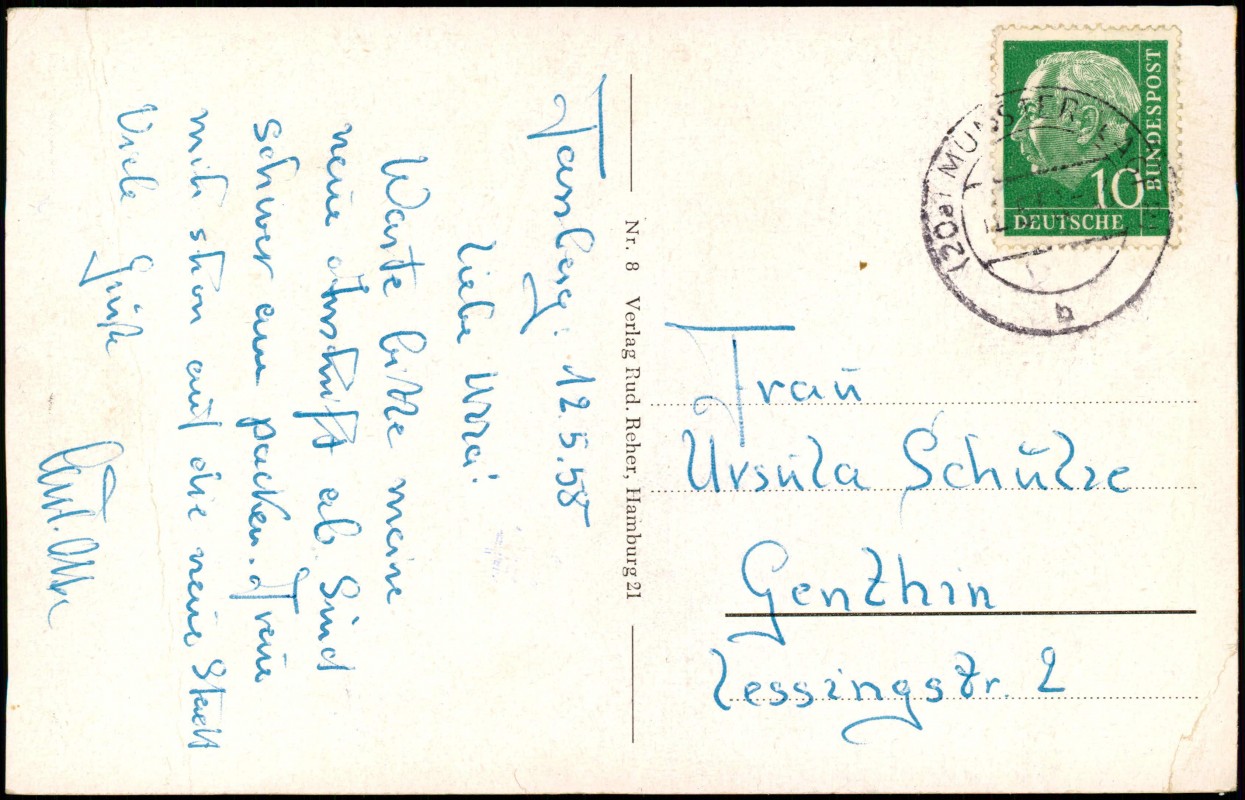 Fassberg: 12.5.58
Liebe Ursel!
Warte bitte meine
neue Anschrift ab. Sind
schwer am packen. Freue
mich schon auf die neue Stadt
Viele Grüße
Nr. 8 Verlag Rud. Reher, Hamburg 21
BUNDESPOST
10
DEUTSCHE
(20a) MUNSTER
b
Frau
Ursula Schulze
Genthin
Lessingstr. 2